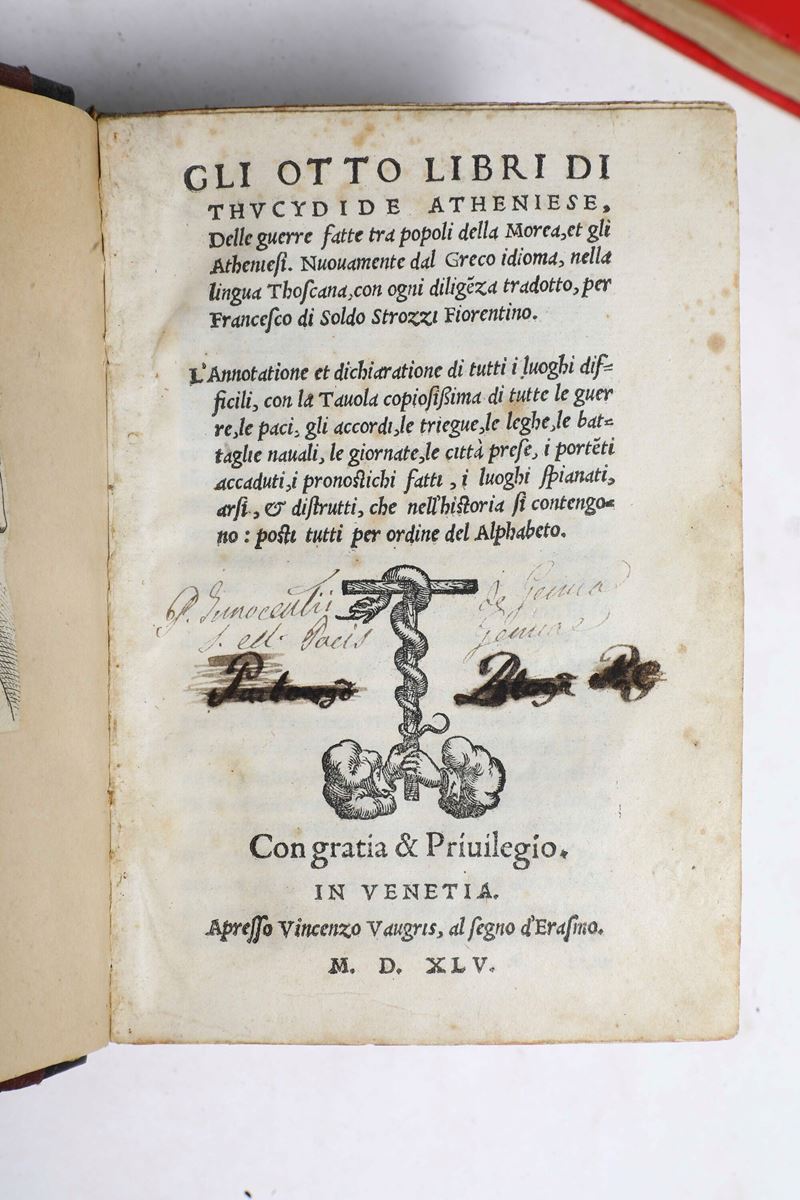 GLI OTTO LIBRI DI
THVCYDIDE ATHENIESE,
Delle guerre fatte tra popoli della Morea, et gli
Atheniesi. Nuouamente dal Greco idioma, nella
lingua Thoscana, con ogni diligẽza tradotto, per
Francesco di Soldo Strozzi Fiorentino.
L'Annotatione et dichiaratione di tutti i luoghi dif=
ficili, con la Tauola copiosißima di tutte le guer
re, le paci, gli accordi, le triegue, le leghe, le bat=
taglie nauali, le giornate, le città prese, i portẽti
accaduti, i pronostichi fatti, i luoghi spianati,
arsi, & distrutti, che nell'historia si contengo=
no: posti tutti per ordine del Alphabeto.
P. Innocentii de Genua
Pacis Genuae
Con gratia & Priuilegio.
IN VENETIA.
Apresso Vincenzo Vaugris, al segno d'Erasmo.
M. D. XLV.